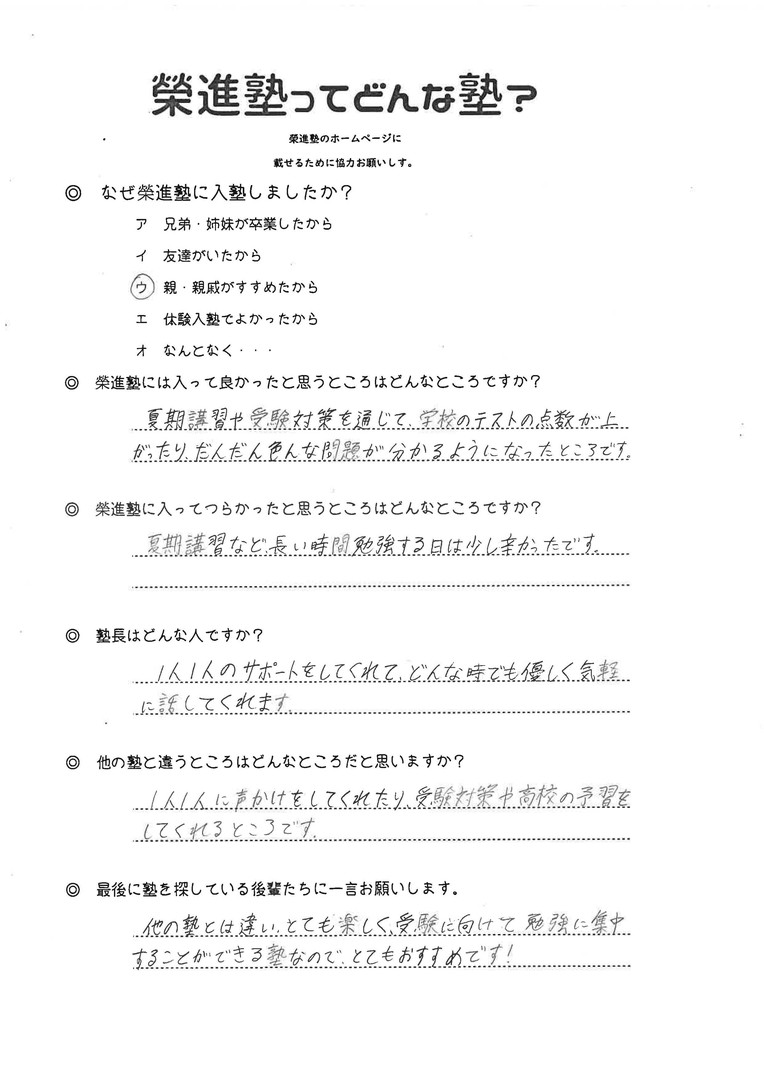 榮進塾ってどんな塾?
榮進塾のホームページに
載せるために協力お願いしす。
◎ なぜ榮進塾に入塾しましたか?
ア 兄弟・姉妹が卒業したから
イ 友達がいたから
ウ 親・親戚がすすめたから
エ 体験入塾でよかったから
オ なんとなく・・・
◎ 榮進塾には入って良かったと思うところはどんなところですか?
夏期講習や受験対策を通じて、学校のテストの点数が上
がったり、だんだん色んな問題が分かるようになったところです。
◎ 榮進塾に入ってつらかったと思うところはどんなところですか?
夏期講習など、長い時間勉強する日は少し辛かったです。
◎ 塾長はどんな人ですか?
1人1人のサポートをしてくれて、どんな時でも優しく気軽
に話してくれます。
◎ 他の塾と違うところはどんなところだと思いますか?
1人1人に声かけをしてくれたり、受験対策や高校の予習を
してくれるところです。
◎ 最後に塾を探している後輩たちに一言お願いします。
他の塾とは違い、とても楽しく、受験に向けて勉強に集中
することができる塾なので、とてもおすすめです!